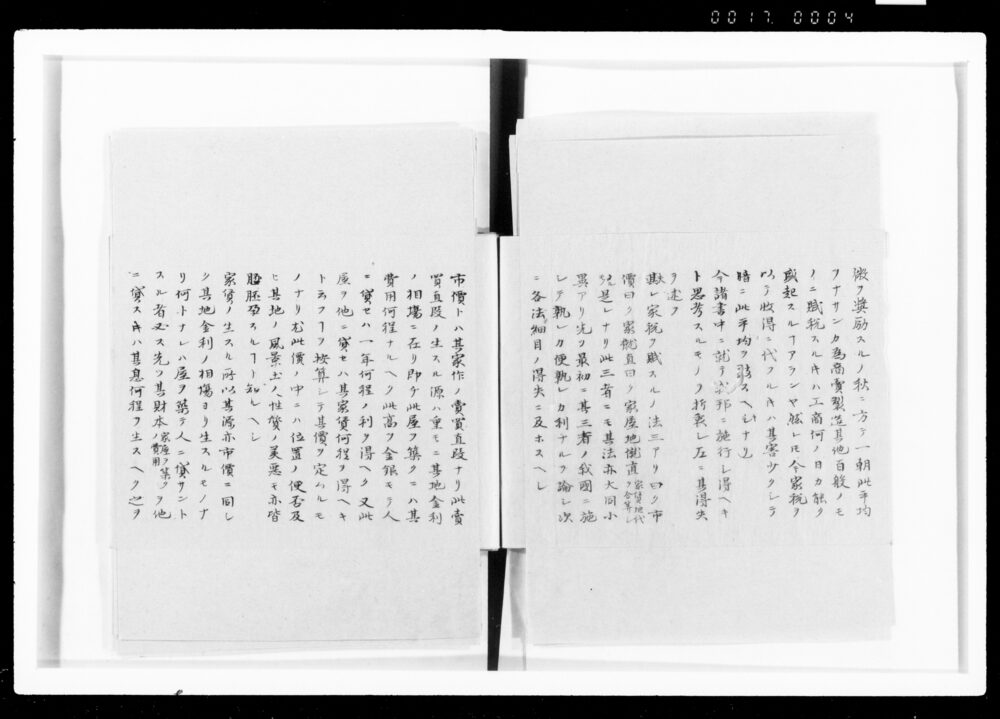 0017 0004
激ヲ奨励スルノ秋ニ方テ一朝此平均
ヲナサンカ為商買製造其他百般ノモ
ノニ賦税スルキハ工商何ノ日カ能ク
盛起スルヿアランヤ然レ𪜈今家税ヲ
以テ収得ニ代フルキハ其害少クシテ
暗ニ此平均ヲ
今諸書中ニ就テ我邦ニ施行シ得ヘキ
ト思考スルモノヲ折衷シ左ニ其得失
ヲ述フ
歟レ家税ヲ賦スルノ法三アリ曰ク市
價曰ク家貰直曰ク家屋地貰直家貸地代ヲ合算シ
是レナリ此三者ニモ其法亦大同小
異アリ先ツ最初ニ其三者ノ我國ニ施
シテ孰レカ便孰レカ利ナルヲ論シ次
ニ各法細目ノ得失ニ及ホスヘシ
市價トハ其家作ノ賣買直段ナリ此賣
買直段ノ生スル源ハ重モニ其地金利
ノ相場ニ在リ即チ此屋ヲ築クニハ其
費用何程ナルヘク此高ヲ金銀モテ人
ニ貸セハ一年何程ノ利ヲ得ヘク又此
屋ヲ他ニ貸セハ其家賃何程ヲ得ヘキ
ト云フヿヲ按算シテ其價ヲ定ムルモ
ノナリ尤此價ノ中ニハ位置ノ便否及
ヒ其地ノ風景土人性質ノ美悪モ亦皆
胚胎スルヿト知ルヘシ
家賃ノ生スル所以其源亦市價ニ同シ
ク其地金利ノ相場ヨリ生スルモノナ
リ何トナレハ屋ヲ築テ人ニ貸サント
スル者必ス先ツ其財本家屋ヲ築クノ費用ヲ他
ニ貸スキハ其息何程ヲ生スヘク之ヲ